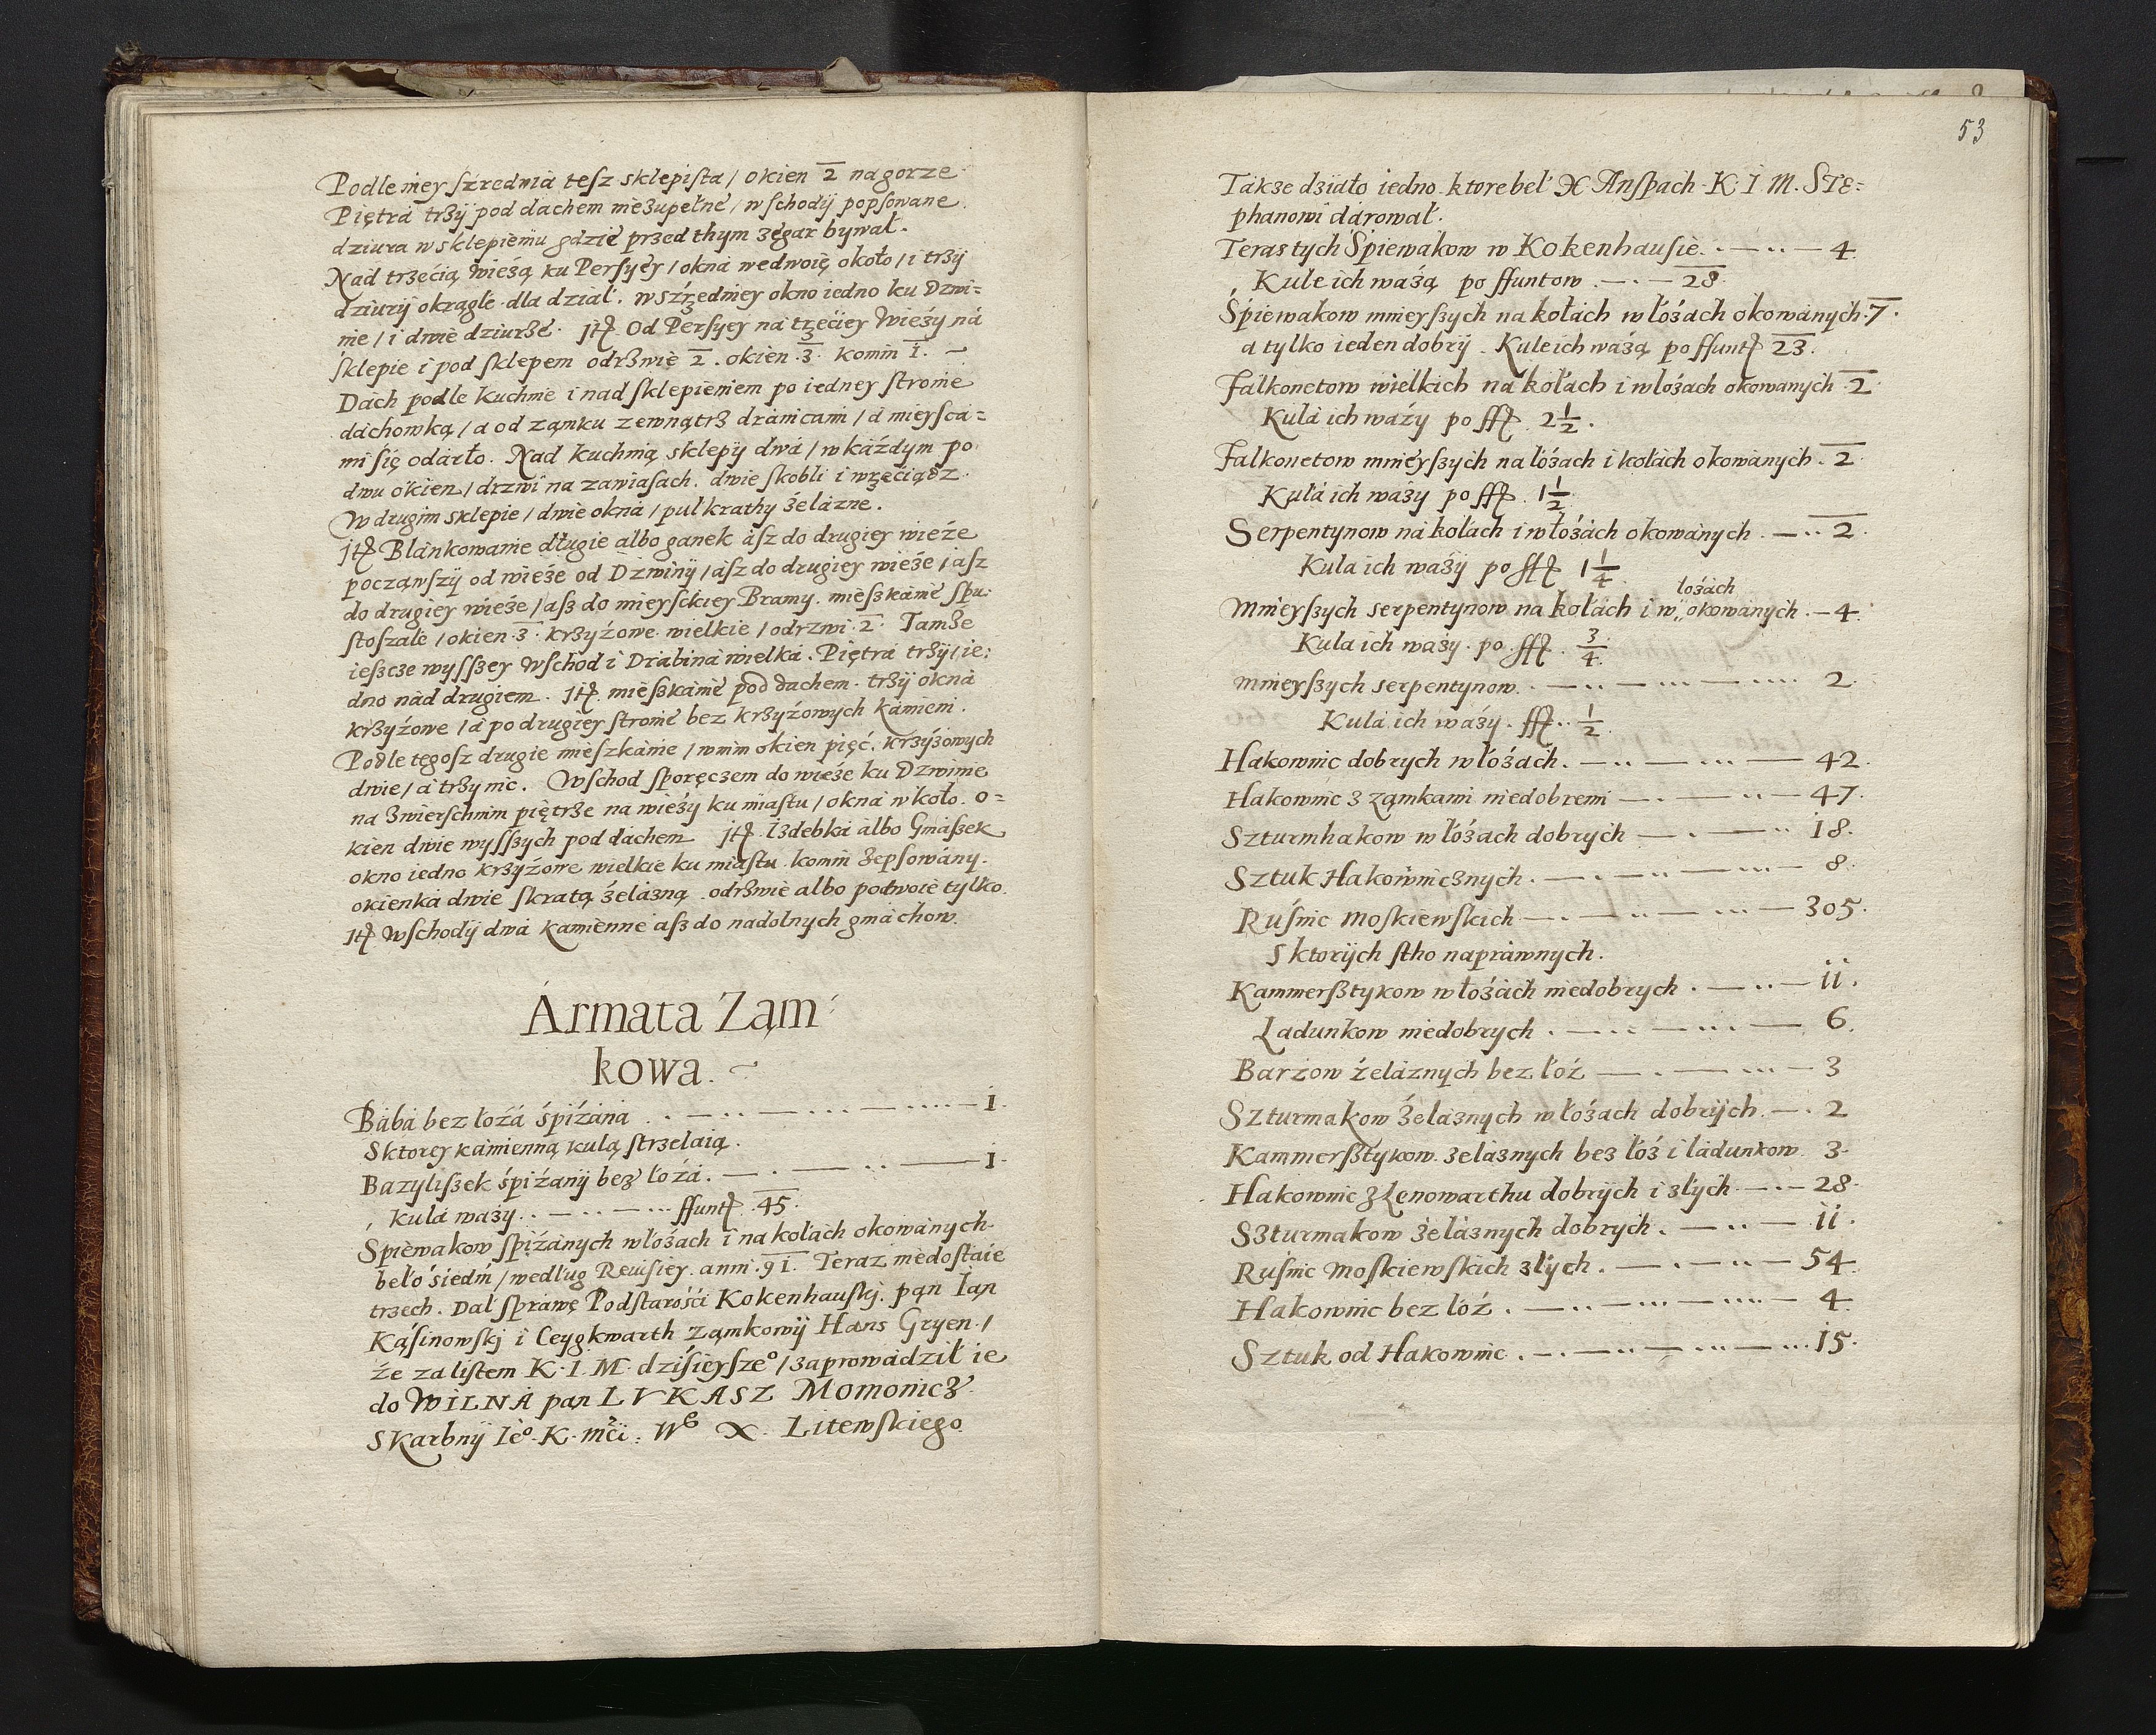 Podle niey szrednia tesz sklepista / okien 2 na gorze
Piętra trzÿ pod dachem niezupełne / wschodÿ popsowane
dziura w sklepieniu gdzie przed thym zegar bywał.
Nad trzecią wieżą ku Persyey / okna we dwoię około / i trzÿ
dziurÿ okrągłe dla dział. w szrzedniey okno iedno ku Dzwi=
nie / i dwie dziurze. Itē Od Persyey na trzeciey wieży ná
sklepie i pod sklepem odrzwie 2. okien 3. komin 1. ~
Dach podle Kuchnie i nad sklepieniem po iedney stronie
dachowką / a od ząmku zewnątrz dranicami / a mieysca=
mi się odarło. Nad kuchnią sklepÿ dwá / w każdym po
dwu okien / drzwi na zawiasach. dwie skobli i wrzeciądz.
W drugim sklepie / dwie okna / puł krathy żelazne.
Itē Blankowanie długie albo ganek ász do drugiey wieże
począwszÿ od wieże od Dzwinÿ / ász do drugiey wieże / asz
do drugiey wieże / asz do mieysckiey Bramy. mieszkanie spu:
stoszałe / okien 3. krzyżowe wielkie / odrzwi 2. Tamże
ieszcze wysszey Wschod i Drabina wielka. Piętra trzÿ / ie:
dno nad drugiem. Itē. mieszkanie pod dachem. trzÿ okna
krzyżowe / a po drugiey stronie bez krzyżowych kamieni.
Podle tegosz drugie mieszkanie / w nim okien pięć. krzyżowych
dwie / a trzy nic. Wschod sporęczem do wieże ku Dzwinie
na zwierschnim piętrze na wieży ku miastu / okna w koło. o=
kien dwie wysszych pod dachem Itē. Izdebka albo Gmaszek
okno iedno krzyżowe wielkie ku miastu. komin zepsowány.
okienka dwie skratą żelazną. odrzwie albo podwoie tylko.
Itē Wschodÿ dwa kamienne asz do nadolnych gmachow.
Armata Zam:
kowa. ~
Baba bez łożá śpiżana . — .. — ... — .... — 1.
S ktorey kamienną kulą strzelaią.
Bazyliszek śpiżanÿ bez łożá. — . — .. — 1.
Kula waży . . — .. — ... ffuntē 45.
Spiewakow spiżanych w łożach i na kołach okowanych
beło siedm / według Reuisiey anni 91. Teraz niedostaie
trzech. Dał sprawę Podstarości Kokenhauskj. pan Ian
Kąsinowskj i Ceygkwarth Ząmkowÿ Hans Gryen. /
że za listem K. I. M. dzisieysze⁰ / zaprowadził ie
do WILNA pan LVKASZ Momonicz
Skarbnÿ Ie⁰. K. mći. W⁰ X. Litewskiego.
53
Takze działo iedno. ktore beł X Anspach K. I. M. STE=
phanowi darował.
Teras tych Spiewakow w Kokenhausie. . — .. — 4
Kule ich ważą po ffuntow . — . — 28.
Spiewakow mnieyszych na kołach w łóżach okowanych. 7.
a tylko ieden dobrÿ. Kule ich ważą po ffuntē 23.
Falkonetow wielkich na kołach i w łożach okowanych 2
Kula ich waży po ffē 2 1/2.
Falkonetow mnieyszych na łożach i kołach okowanych. 2.
Kula ich waży po ffē. 1 1/2
Serpentynow na kołach i w łóżach okowanych . — .. 2.
Kula ich ważÿ po ffē 1 1/4.
łożach
Mnieyszych serpentynow na kołach i w,, okowanych . — 4.
Kula ich waży. po. ffē. 3/4.
mnieyszych serpentynow. . — .. — ... — .... 2.
Kula ich waży. ffē.. 1/2.
Hakownic dobrych w łóżach. — .. — ... — 42.
Hakownic z ząmkami niedobremi — . — .. — 47.
Szturmhakow w łóżach dobrych — . — .. 18.
Sztuk Hakownicznych . — . — .. — ... — 8.
Ruśnic Moskiewskich — . — .. — ... — 305.
S ktorÿch stho naprawnych.
Kammersztykow w łożach niedobrych . — .. — 11.
Ładunkow niedobrych . — .. — ... — 6.
Barzow żeláznych bez łoż — . — ... — 3
Szturmakow żelaznych w łożach dobrÿch. — . 2
Kammersztykow. zelaznych bez łóż i ladunkow 3.
Hakownic z Lenowarthu dobrÿch i złych — . — 28.
Szturmakow żelaznych dobrych . — .. — 11.
Ruśnic Moskiewskich złych . — . — .. — 54
Hakownic bez łoż . — .. — ... — .... — 4.
Sztuk od Hakownic . — . — .. — ... — ... 15.